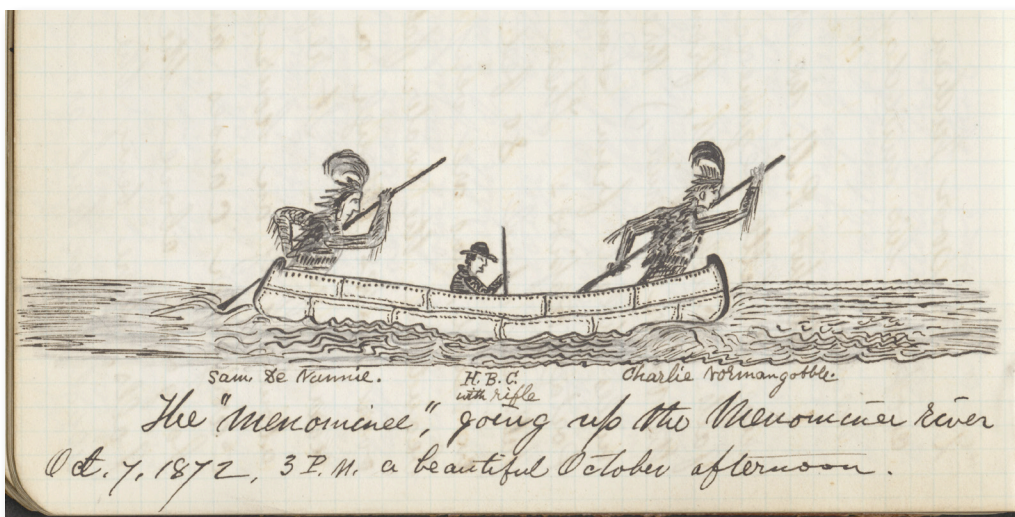 Sam De Nannie.
H. B. C.
with rifle
Charlie Normangobble.
The "Menominee", going up the Menominee river
Oct. 7, 1872, 3 P.M. a beautiful October afternoon.